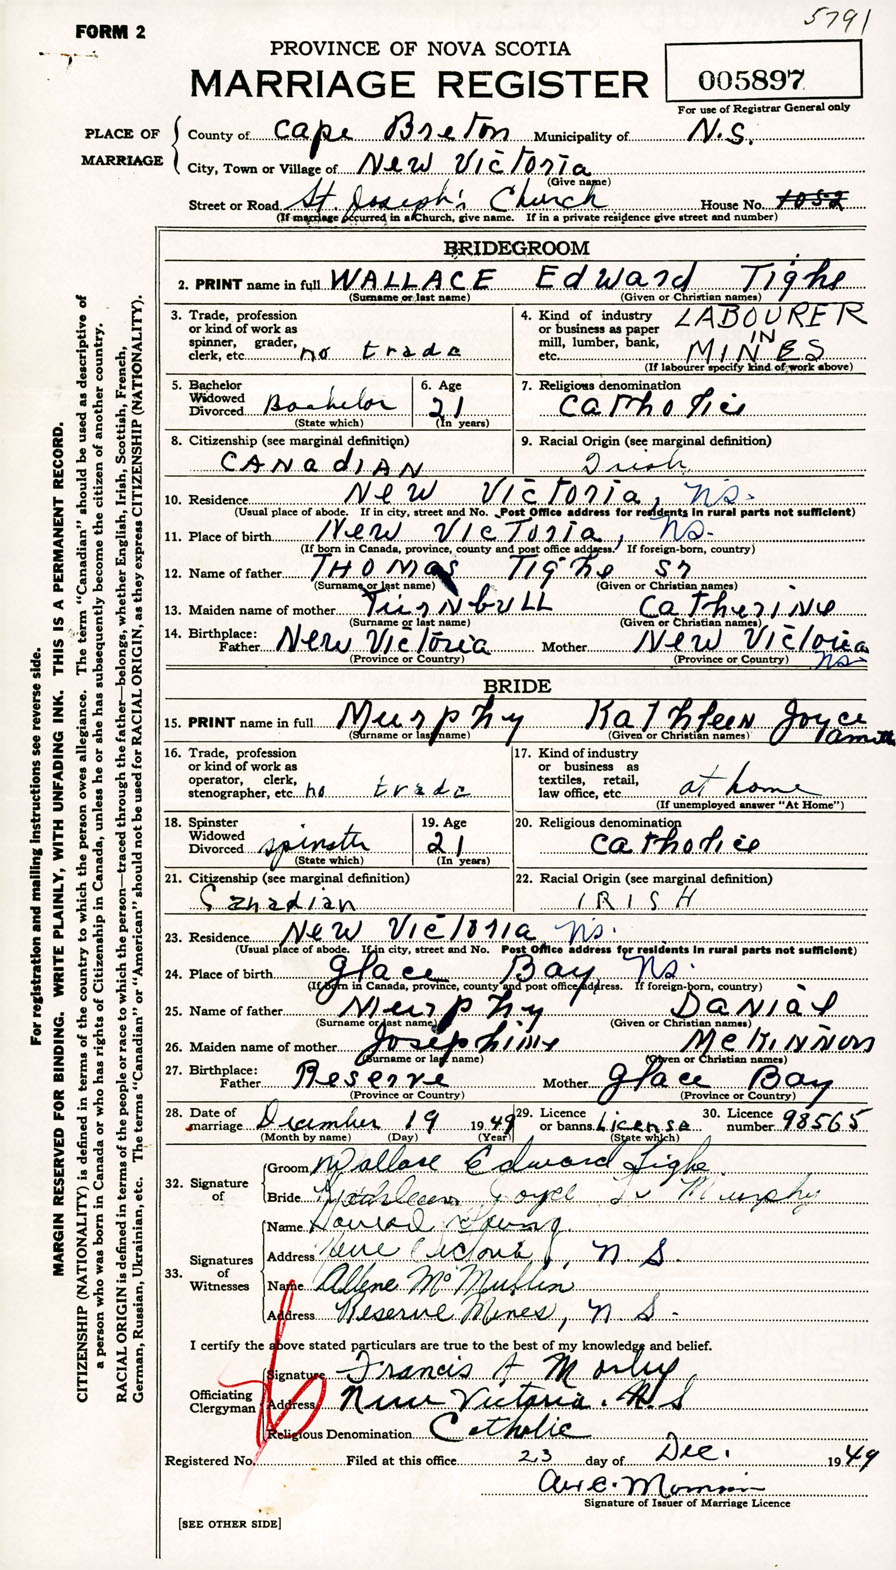 5791
FORM 2
PROVINCE OF NOVA SCOTIA
MARRIAGE REGISTER
005897
For use of Registrar General only
PLACE OF MARRIAGE
County of Cape Breton Municipality of N.S.
City, Town or Village of New Victoria
(Give name)
Street or Road St. Joseph's Church House No. 1052
(If marriage occurred in a Church, give name. If in a private residence give street and number)
BRIDEGROOM
2. PRINT name in full WALLACE Edward Tighe
(Surname or last name) (Given or Christian names)
3. Trade, profession or kind of work as spinner, grader, clerk, etc. no trade
4. Kind of industry or business as paper mill, lumber, bank, etc. LABOURER IN MINES
(If labourer specify kind of work above)
5. Bachelor Widowed Divorced Bachelor
(State which)
6. Age 21
(In years)
7. Religious denomination Catholic
8. Citizenship (see marginal definition) CANAdIAN
9. Racial Origin (see marginal definition) Irish
10. Residence New Victoria, NS.
(Usual place of abode. If in city, street and No. Post Office address for residents in rural parts not sufficient)
11. Place of birth New Victoria, NS.
(If born in Canada, province, county and post office address. If foreign-born, country)
12. Name of father THOMas Tighe Sr
(Surname or last name) (Given or Christian names)
13. Maiden name of mother TurNbuLL Catherine
(Surname or last name) (Given or Christian names)
14. Birthplace: Father New Victoria Mother New Victoria NS
(Province or Country) (Province or Country)
BRIDE
15. PRINT name in full Murphy Kathleen Joyce
(Surname or last name) (Given or Christian names)
16. Trade, profession or kind of work as operator, clerk, stenographer, etc. no trade
17. Kind of industry or business as textiles, retail, law office, etc. at home
(If unemployed answer "At Home")
18. Spinster Widowed Divorced spinster
(State which)
19. Age 21
(In years)
20. Religious denomination Catholic
21. Citizenship (see marginal definition) Canadian
22. Racial Origin (see marginal definition) IRISH
23. Residence New Victoria NS.
(Usual place of abode. If in city, street and No. Post Office address for residents in rural parts not sufficient)
24. Place of birth Glace Bay NS.
(If born in Canada, province, county and post office address. If foreign-born, country)
25. Name of father Murphy Danial
(Surname or last name) (Given or Christian names)
26. Maiden name of mother Josephine McKinnon
(Surname or last name) (Given or Christian names)
27. Birthplace: Father Reserve Mother Glace Bay
(Province or Country) (Province or Country)
28. Date of marriage December 19 1949
(Month by name) (Day) (Year)
29. Licence or banns License
(State which)
30. Licence number 98565
32. Signature of
Groom Wallace Edward Tighe
Bride Kathleen Joyce Murphy
33. Signatures of Witnesses
Name Young
Address New Victoria, N S.
Name Allene McMullin
Address Reserve Mines, N S.
I certify the above stated particulars are true to the best of my knowledge and belief.
Officiating Clergyman
Signature Francis A
Address New Victoria. N.S
Religious Denomination Catholic
Registered No. Filed at this office 23 day of Dec. 1949
Signature of Issuer of Marriage Licence
[SEE OTHER SIDE]
For registration and mailing instructions see reverse side.
MARGIN RESERVED FOR BINDING. WRITE PLAINLY, WITH UNFADING INK. THIS IS A PERMANENT RECORD.
CITIZENSHIP (NATIONALITY) is defined in terms of the country to which the person owes allegiance. The term "Canadian" should be used as descriptive of
a person who was born in Canada or who has rights of Citizenship in Canada, unless he or she has subsequently become the citizen of another country.
RACIAL ORIGIN is defined in terms of the people or race to which the person—traced through the father—belongs, whether English, Irish, Scottish, French,
German, Russian, Ukrainian, etc. The terms "Canadian" or "American" should not be used for RACIAL ORIGIN, as they express CITIZENSHIP (NATIONALITY).